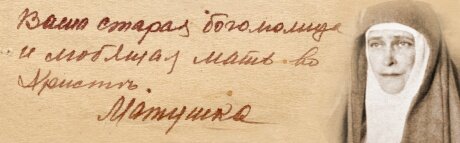 Ваша старая богомолица
и любящая мать во
Христѣ
Матушка